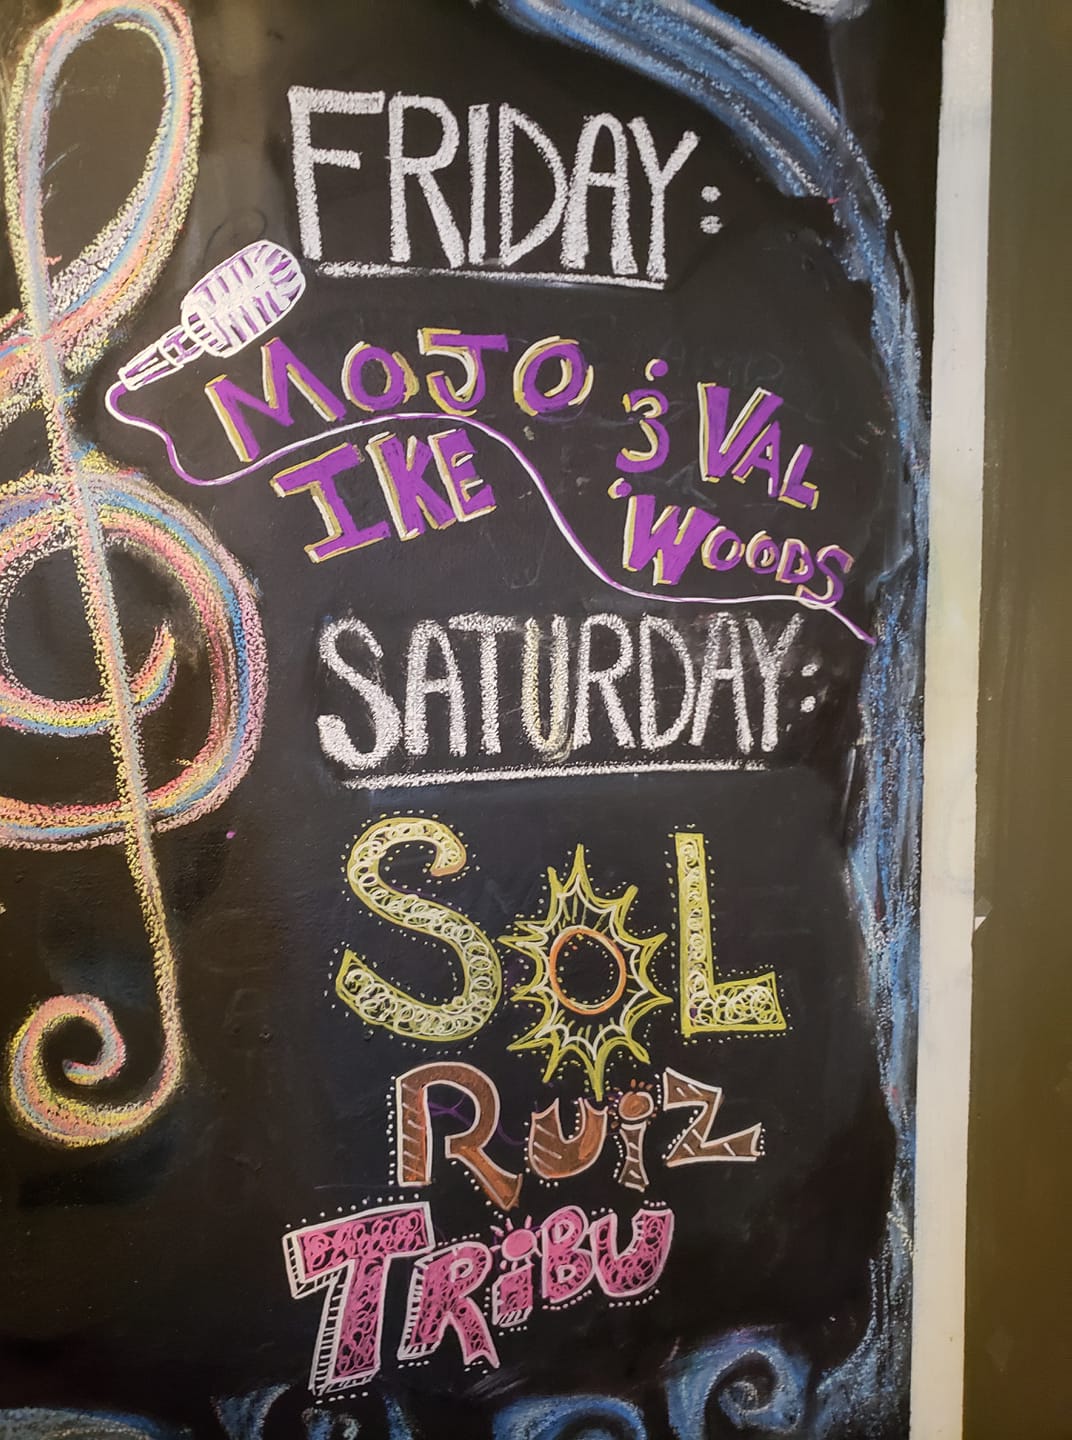 FRIDAY:
MOJO & VAL
IKE WOODS
SATURDAY:
SOL
RUiZ
TRiBU